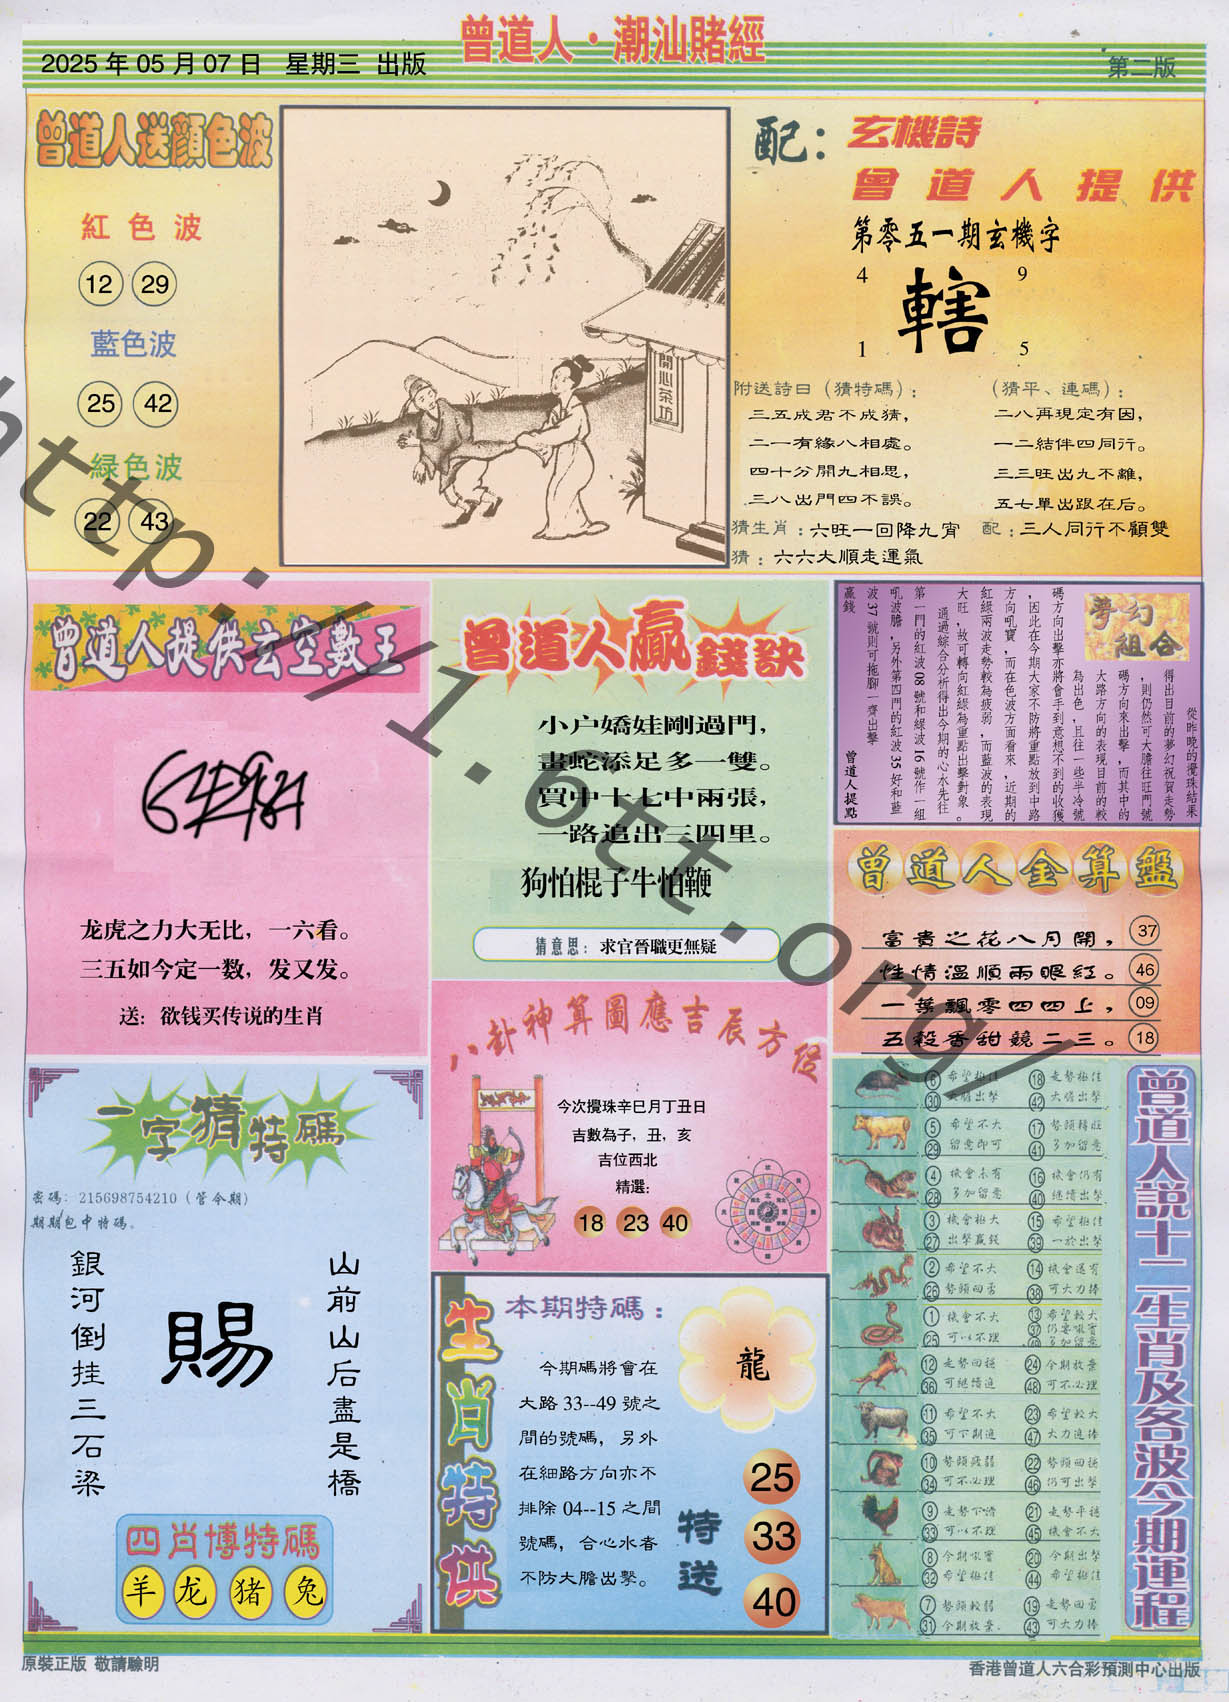 曾道人·潮汕賭經
2025 年 05 月 07 日 星期三 出版
第二版
曾道人送顔色波
紅色波
12 29
藍色波
25 42
緑色波
22 43
開心茶坊
配：玄機詩
曾道人提供
第零五一期玄機字
4 9
轄
1 5
附送詩曰（猜特碼）：
三五成君不成猜，
二一有緣八相處。
四十分開九相思，
三八出門四不誤。
（猜平、連碼）：
二八再現定有因，
一二結伴四同行。
三三旺出九不離，
五七單出跟在后。
猜生肖：六旺一回降九宵 配：三人同行不顧雙
猜：六六大順走運氣
曾道人提供玄空數王
龙虎之力大无比，一六看。
三五如今定一数，发又发。
送：欲钱买传说的生肖
曾道人贏錢訣
小户嬌娃剛過門，
畫蛇添足多一雙。
買中十七中兩張，
一路追出三四里。
狗怕棍子牛怕鞭
猜意思：求官晉職更無疑
夢幻組合
從昨晚的攪珠結果
得出目前的夢幻祝賀走勢
，則仍然可大膽往旺門號
碼方向來出擊，而其中的
大路方向的表現目前的較
為出色，且往一些半冷號
碼方向出擊亦將會手到意想不到的收獲
，因此在今期大家不防將重點放到中路
方向吼寶，而在色波方面看來，近期的
紅綠兩波走勢較為疲弱，而藍波的表現
大旺，故可轉向紅綠為重點出擊對象。
通過綜合分析得出今期的心水先往
第一門的紅波 08 號和綠波 16 號作一組
吼波膽，另外第四門的紅波 35 好和藍
波 37 號則可拖腳一齊出擊
贏錢
曾道人提點
曾道人金算盤
富貴之花八月開， 37
性情溫順兩眼紅。 46
一葉飄零四四上， 09
五穀香甜競二三。 18
八卦神算圖應吉辰方位
今次攪珠辛巳月丁丑日
吉數為子，丑，亥
吉位西北
精選：
18 23 40
一字猜特碼
密碼：215698754210（管令期）
期期包中特碼。
銀河倒挂三石梁
賜
山前山后盡是橋
四肖博特碼
羊 龙 猪 兔
生肖特供
本期特碼：
龍
今期碼將會在
大路 33--49 號之
間的號碼，另外
在細路方向亦不
排除 04--15 之間
號碼，合心水者
不防大膽出擊。
特送
25
33
40
曾道人説十二生肖及各波今期運程
6 希望極佳 18 走勢極佳
30 大膽出擊 42 大膽出擊
5 希望不大 17 勢頭轉旺
29 留意即可 41 多加留意
4 機會未有 16 機會仍有
28 多加留意 40 繼續出擊
3 機會極大 15 希望極佳
27 出擊贏錢 39 一於出擊
2 希望不大 14 機會還有
26 勢頭回落 38 可大力捧
1 機會不大 13 希望較大
25 可以不理
12 走勢回穩 24 今期放棄
36 可繼續追 48 可不必理
11 希望不大 23 希望較大
35 可下期追 47 大力追捧
10 勢頭疲弱 22 勢頭回穩
34 可不必理 46 仍可出擊
9 走勢下滑 21 走勢平穩
33 可以不理 45 機會不大
8 今期吼寶 20 今期出擊
32 希望極佳 44 希望極佳
7 勢頭較弱 19 走勢回落
31 今期放棄. 43 可大力捧
原裝正版 敬請驗明
香港曾道人六合彩預測中心出版
http://1.6tt.org/